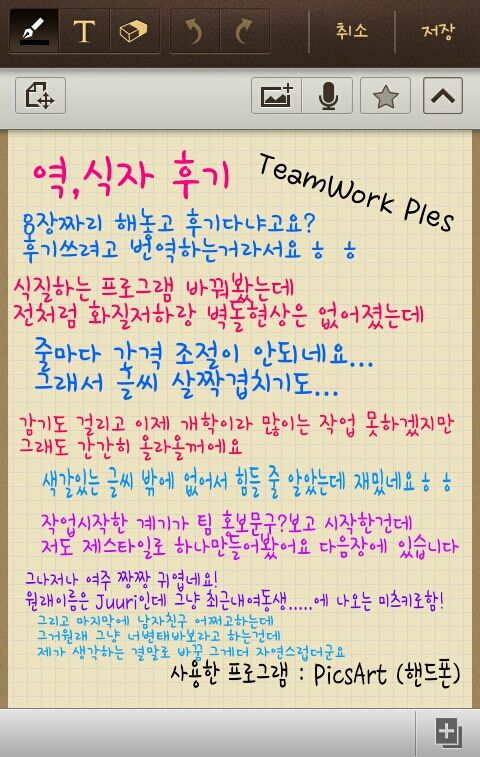 취소
저장
역,식자 후기
TeamWork Ples
8장짜리 해놓고 후기다냐고요?
후기쓰려고 번역하는거라서요ㅎㅎ
식질하는 프로그램 바꿔봤는데
전처럼 화질저하랑 벽돌현상은 없어졌는데
줄마다 간격 조절이 안되네요...
그래서 글씨 살짝겹치기도...
감기도 걸리고 이제 개학이라 많이는 작업 못하겠지만
그래도 간간히 올라올꺼에요
색깔있는 글씨 밖에 없어서 힘들 줄 알았는데 재밌네요ㅎㅎ
작업시작한 계기가 팀 홍보문구?보고 시작한건데
저도 제스타일로 하나만들어봤어요 다음장에 있습니다
그나저나 여주 짱짱 귀엽네요!
원래이름은 Juuri인데 그냥 최근내여동생.....에 나오는 미츠키로함!
그리고 마지막에 남자친구 어쩌고하는데
그거원래 그냥 너변태바보라고 하는건데
제가 생각하는 결말로 바꿈 그게더 자연스럽더군요
사용한 프로그램 : PicsArt (핸드폰)